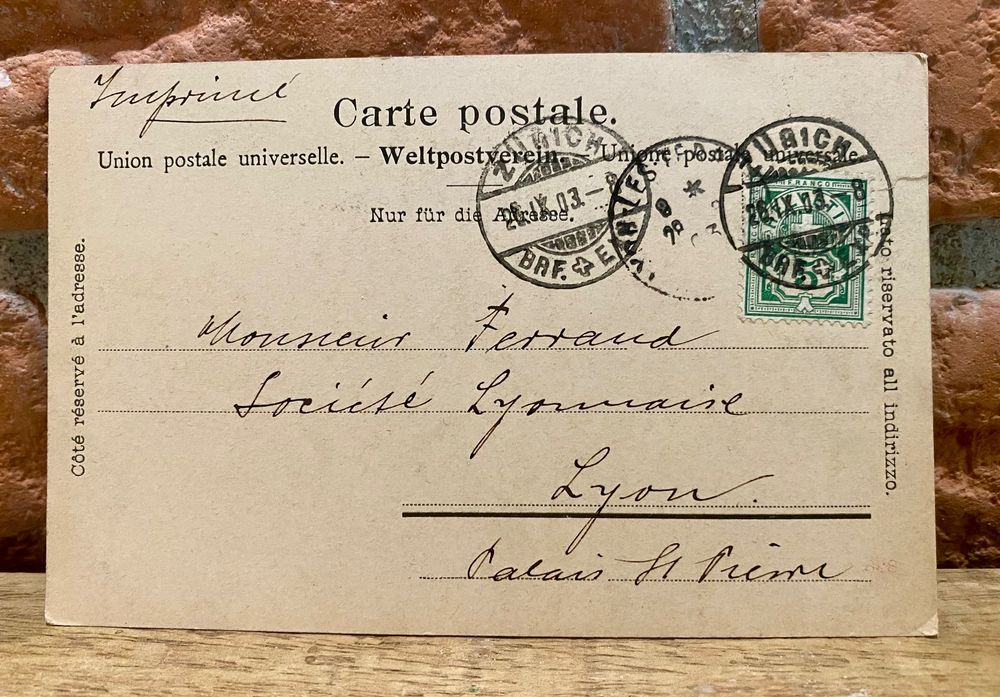 Imprimé
Carte postale.
Union postale universelle. – Weltpostverein. – Unione postale universale
Nur für die Adresse.
Côté réservé à l'adresse.
ZÜRICH
26.IX.03.–8
BRF.
ZÜRICH
26.IX.03. 8
BRF.
FRANCO
5
Lato riservato all indirizzo.
Monsieur Ferrand
Société Lyonnaise
Lyon.
Palais St Pierre